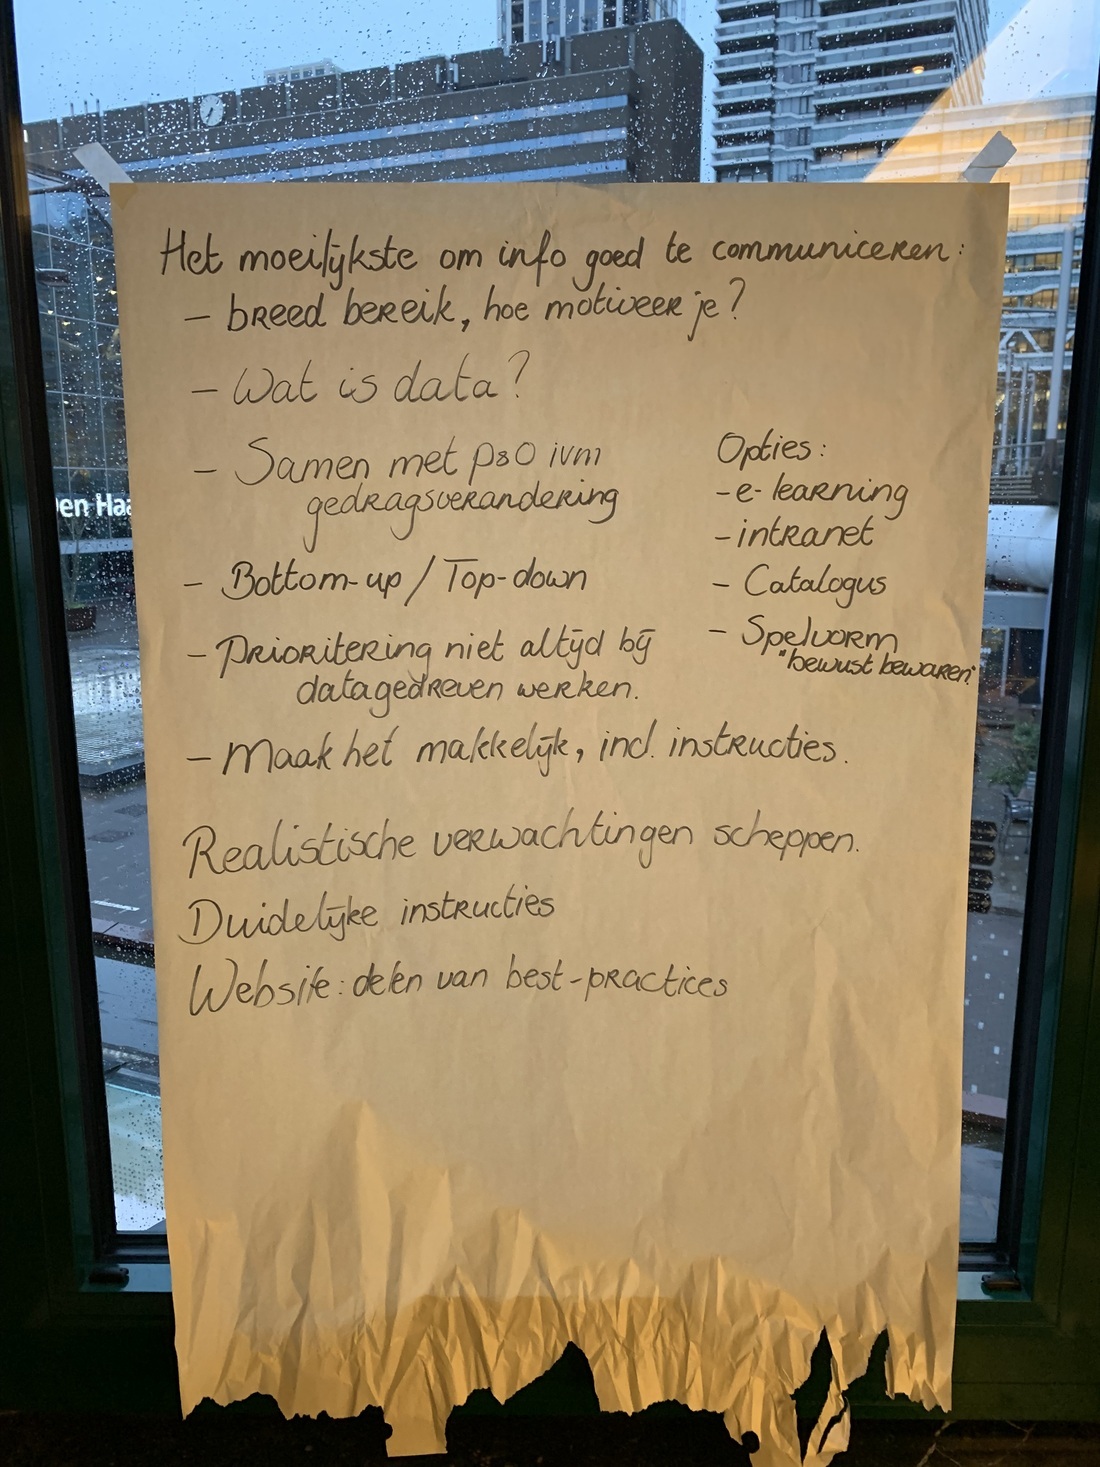 Het moeilijkste om info goed te communiceren:
- breed bereik, hoe motiveer je?
- Wat is data?
- Samen met P&O ivm
gedragsverandering
- Bottom-up / Top-down
- Prioritering niet altijd bij
datagedreven werken.
- Maak het makkelijk, incl. instructies.
Opties:
- e-learning
- intranet
- Catalogus
- Spelvorm
"bewust bewaren"
Realistische verwachtingen scheppen.
Duidelijke instructies
Website: delen van best-practices
Den Haa